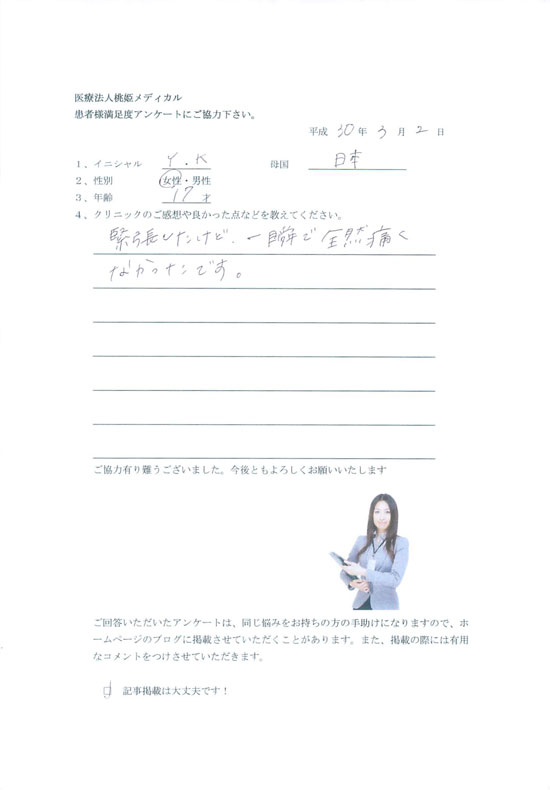 医療法人桃姫メディカル
患者様満足度アンケートにご協力下さい。
平成 30 年 3 月 2 日
1、イニシャル Y.K 母国 日本
2、性別 女性・男性
3、年齢 17 才
4、クリニックのご感想や良かった点などを教えてください。
緊張したけど、一瞬で全然痛く
なかったです。
ご協力有り難うございました。今後ともよろしくお願いいたします
ご回答いただいたアンケートは、同じ悩みをお持ちの方の手助けになりますので、ホ
ームページのブログに掲載させていただくことがあります。また、掲載の際には有用
なコメントをつけさせていただきます。
記事掲載は大丈夫です！